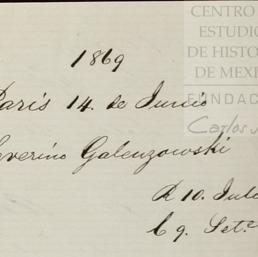 1869
Paris 14. de Junio
Severino Galenzowski
R 10. Julio
C 9. Set.e
CENTRO
ESTUDIO
DE HISTO
DE MEXI
FUNDAC
Carlos